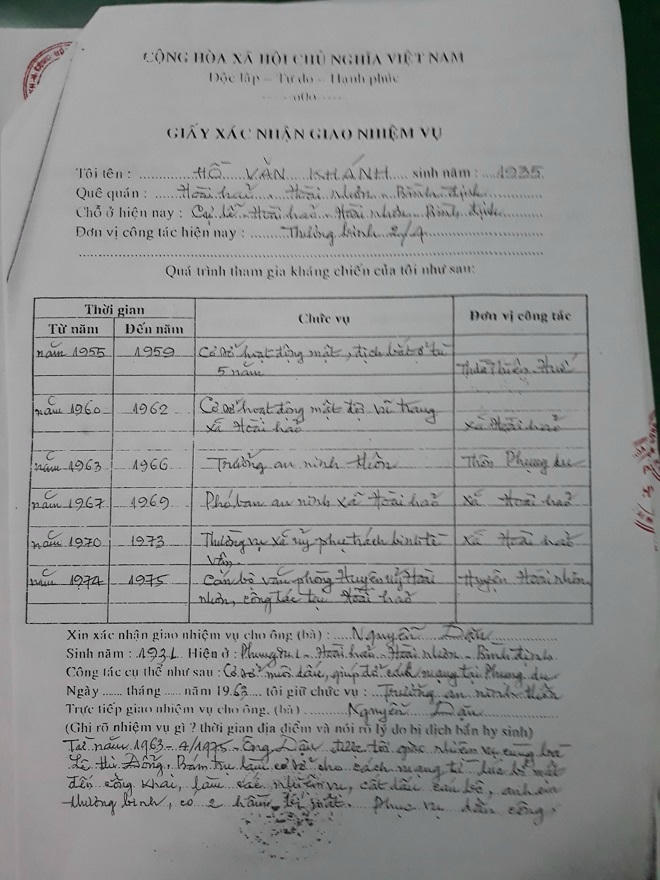 CỘNG HÒA XÃ HỘI CHỦ NGHĨA VIỆT NAM
Độc lập – Tự do – Hạnh phúc
-----o0o-----
GIẤY XÁC NHẬN GIAO NHIỆM VỤ
Tôi tên : HỒ VĂN KHÁNH sinh năm : 1935
Quê quán : Hoài hảo - Hoài Nhơn - Bình định
Chỗ ở hiện nay : Cự lễ - Hoài hảo - Hoài nhơn - Bình định
Đơn vị công tác hiện nay : Thương binh 2/4
Quá trình tham gia kháng chiến của tôi như sau:
Thời gian Chức vụ Đơn vị công tác
Từ năm Đến năm
năm 1955 1959 Cơ sở hoạt động mật, địch bắt ở tù
5 năm Thừa Thiên Huế
năm 1960 1962 Cơ sở hoạt động mật đội vũ trang
xã Hoài hảo xã Hoài hảo
năm 1963 1966 Trưởng an ninh thôn Thôn Phụng du
năm 1967 1969 Phó ban an ninh xã Hoài hảo xã Hoài hảo
năm 1970 1973 Thường vụ xã ủy phụ trách binh tề
vận. xã Hoài hảo
năm 1974 1975 Cán bộ văn phòng Huyện ủy Hoài
nhơn, công tác tại Hoài hảo Huyện Hoài nhơn
Xin xác nhận giao nhiệm vụ cho ông (bà) : Nguyễn Dậu
Sinh năm : 1931. Hiện ở : Phụng du 1 - Hoài hảo - Hoài nhơn - Bình định
Công tác cụ thể như sau : Cơ sở nuôi dấu, giúp đỡ cách mạng tại Phụng du
Ngày ...... tháng ...... năm 1963 tôi giữ chức vụ : Trưởng an ninh thôn
Trực tiếp giao nhiệm vụ cho ông. (bà) Nguyễn Dậu
(Ghi rõ nhiệm vụ gì ? thời gian địa điểm và nói rõ lý do bị địch bắn hy sinh)
Từ năm 1963 - 4/1975 - Ông Dậu được tôi giao nhiệm vụ cùng bà
Lê thị Đông. Bám trụ làm cơ sở cho cách mạng từ lúc bí mật
đến công khai, làm các nhiệm vụ, cất dấu cán bộ, anh em
thương binh, có 2 hầm bí mật. Phục vụ dân công.